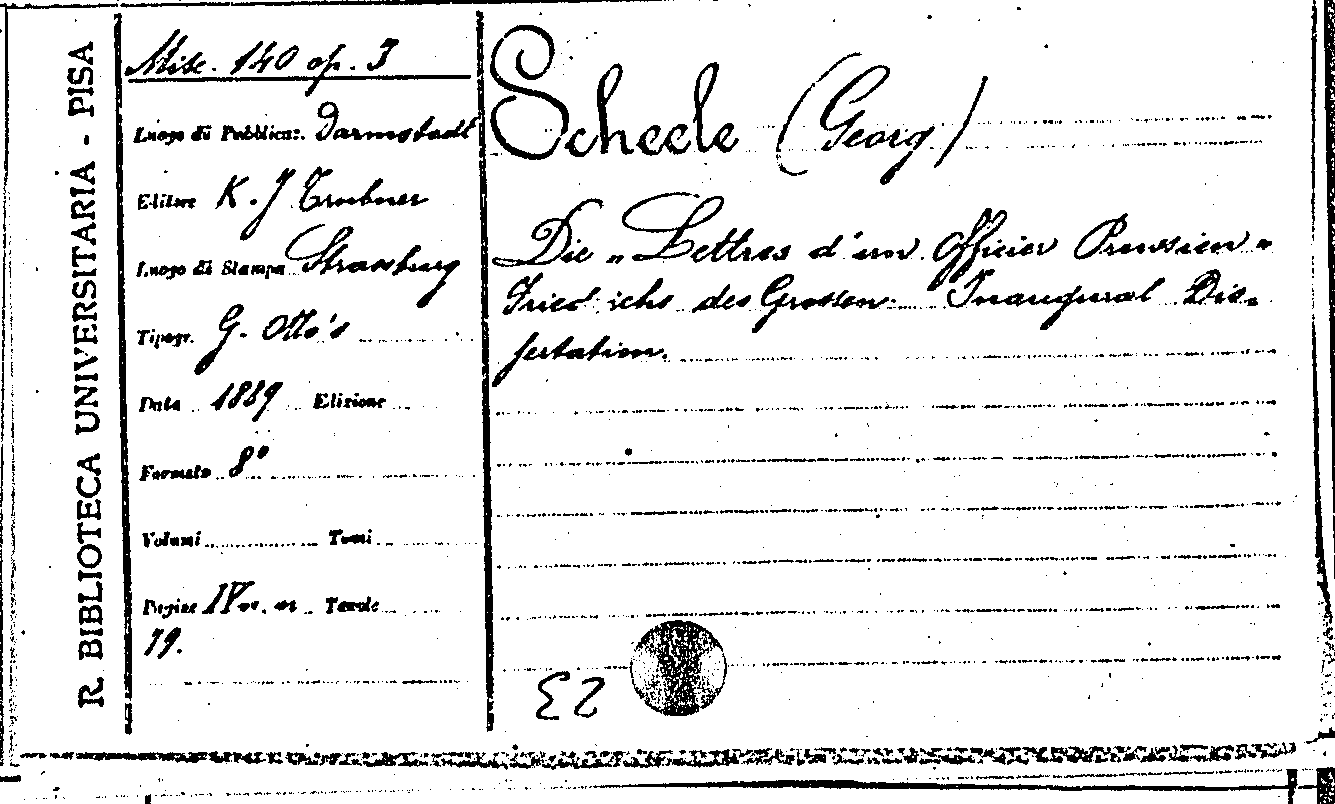 R. BIBLIOTECA UNIVERSITARIA - PISA
Misc. 140 op. 3
Luogo di Pubblicaz. Darmstadt
Editore K. J Trubner
Luogo di Stampa Strassburg
Tipogr. G. Otto's
Data 1889 Edizione
Formato 8°
Volumi Tomi
Pagine IV Tavole
79.
Scheele (Georg)
Die „Lettres d'un Officier Prussien"
Friedrichs des Grossen. Inaugural Dis-
sertation.
23